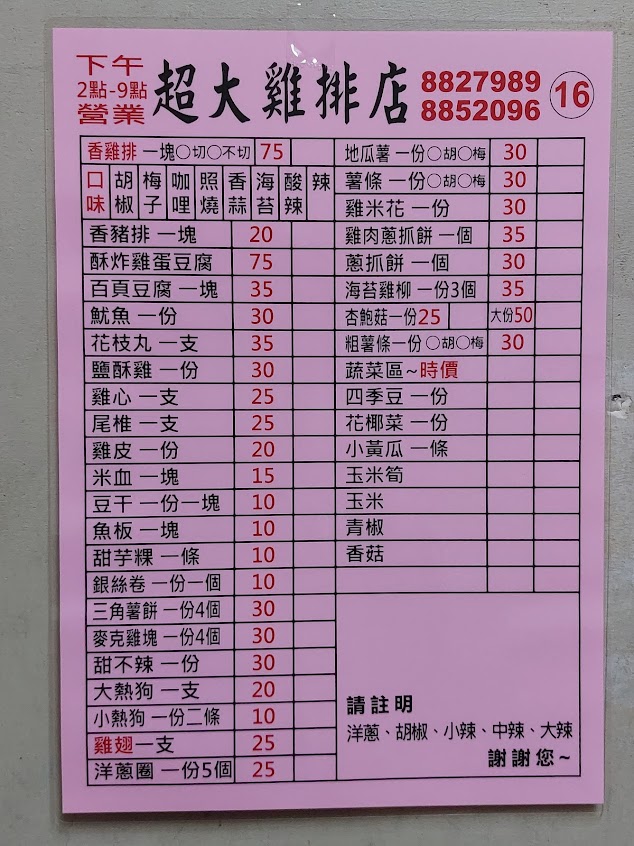 下午
2點-9點
營業
超大雞排店
8827989
8852096
16
香雞排 一塊○切○不切 75
口味 胡椒 梅子 咖哩 照燒 香蒜 海苔 酸辣 辣
香豬排 一塊 20
酥炸雞蛋豆腐 75
百頁豆腐 一塊 35
魷魚 一份 30
花枝丸 一支 35
鹽酥雞 一份 30
雞心 一支 25
尾椎 一支 25
雞皮 一份 20
米血 一塊 15
豆干 一份一塊 10
魚板 一塊 10
甜芋粿 一條 10
銀絲卷 一份一個 10
三角薯餅 一份4個 30
麥克雞塊 一份4個 30
甜不辣 一份 30
大熱狗 一支 20
小熱狗 一份二條 10
雞翅一支 25
洋蔥圈 一份5個 25
地瓜薯 一份○胡○梅 30
薯條 一份○胡○梅 30
雞米花 一份 30
雞肉蔥抓餅 一個 35
蔥抓餅 一個 30
海苔雞柳 一份3個 35
杏鮑菇一份25 大份50
粗薯條一份 ○胡○梅 30
蔬菜區~時價
四季豆 一份
花椰菜 一份
小黃瓜 一條
玉米筍
玉米
青椒
香菇
請註明
洋蔥、胡椒、小辣、中辣、大辣
謝謝您~